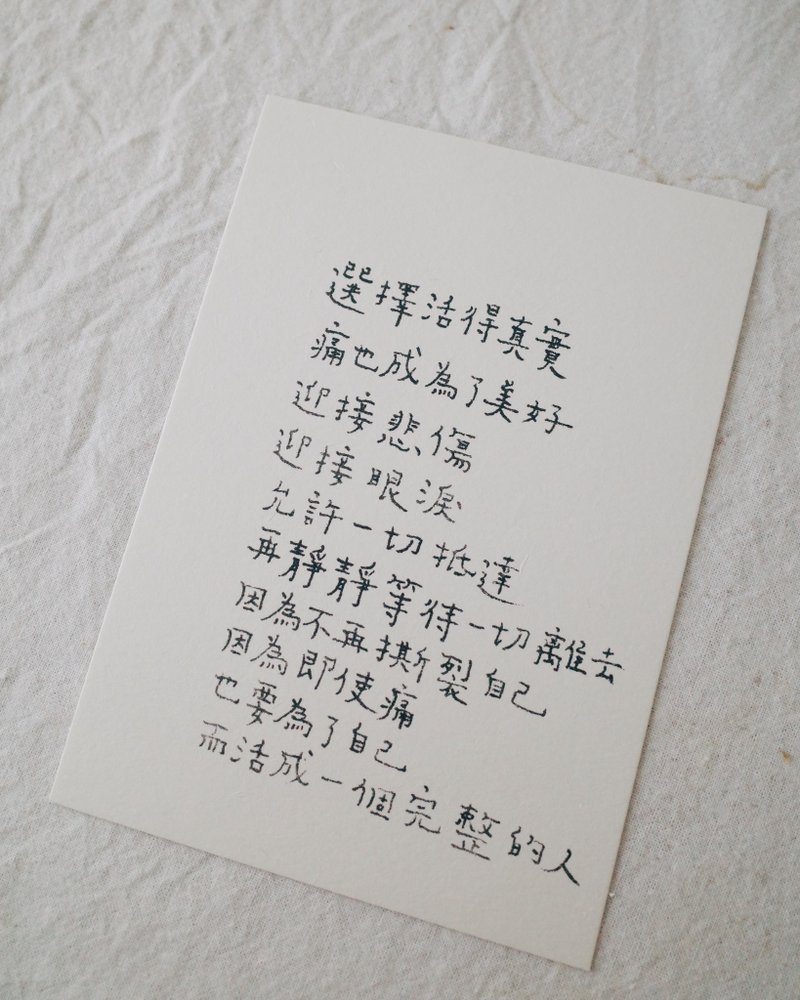 選擇活得真實
痛也成為了美好
迎接悲傷
迎接眼淚
允許一切抵達
再靜靜等待一切離去
因為不再撕裂自己
因為即使痛
也要為了自己
而活成一個完整的人